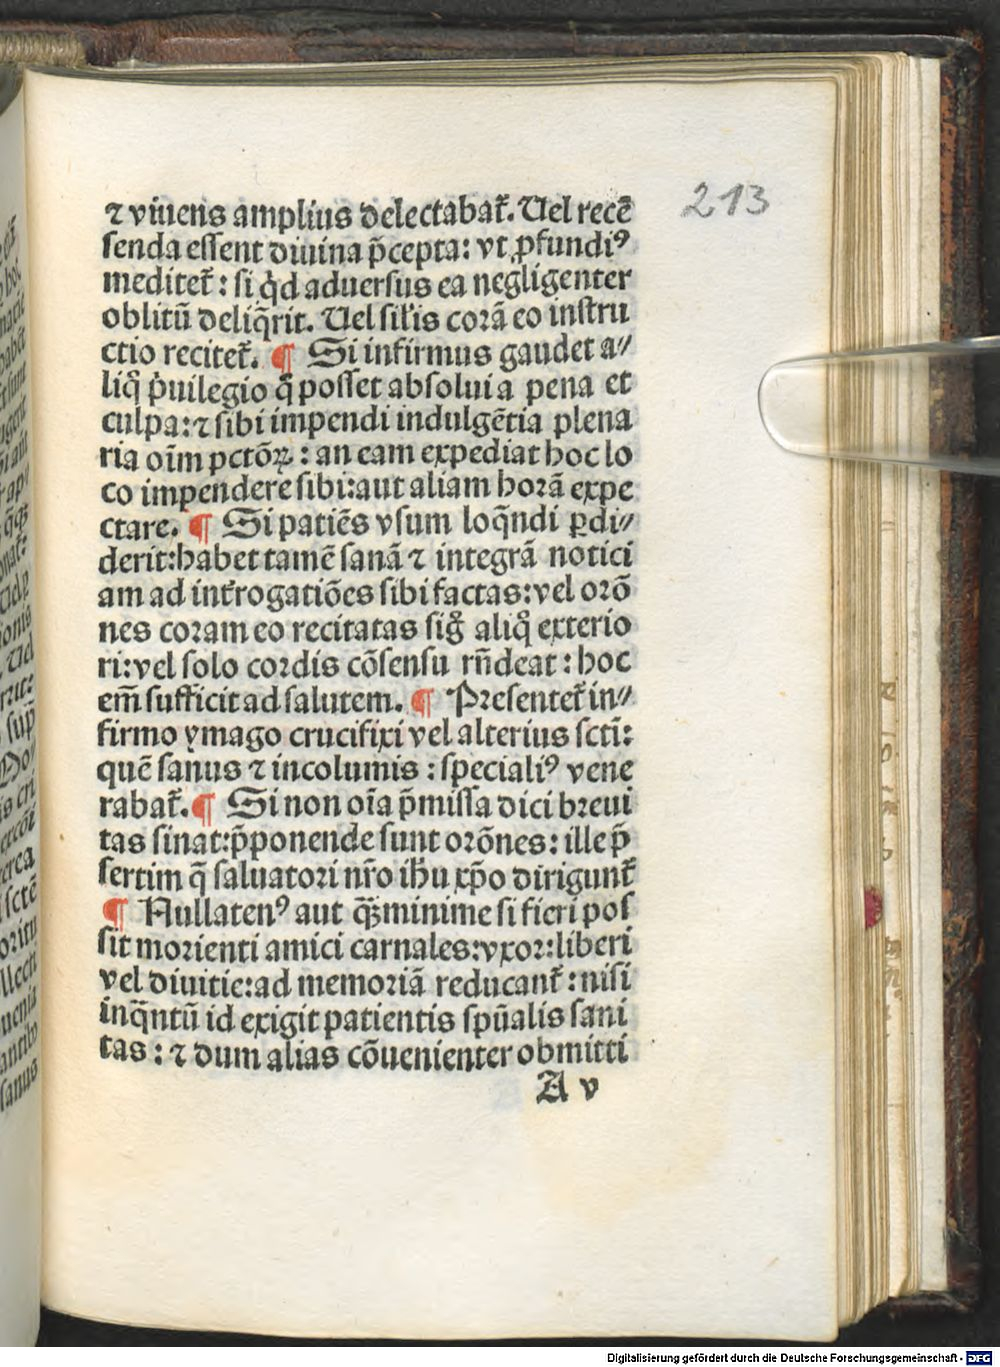 213
⁊ viuens amplius delectabat̃. Uel recẽ
senda essent diuina p̃cepta: vt ꝓfundiꝰ
meditet̃: si q̇d aduersus ea negligenter
oblitũ deliq̃rit. Uel sil'is corã eo instru
ctio recitet̃. ¶ Si infirmus gaudet a//
liq̃ p̃uilegio q̃ posset absolui a pena et
culpa: ⁊ sibi impendi indulgẽtia plena
ria oĩm pctõꝝ: an eam expediat hoc lo
co impendere sibi: aut aliam horã expe
ctare. ¶ Si patiẽs vsum loq̃ndi ꝑdi//
derit: habet tamẽ sanã ⁊ integrã notici
am ad int̃rogatiões sibi factas: vel orõ
nes coram eo recitatas sig̃ aliq̃ exterio
ri: vel solo cordis cõsensu rñdeat: hoc
em̃ sufficit ad salutem. ¶ Presentet̃ in//
firmo ymago crucifixi vel alterius scti:
quẽ sanus ⁊ incolumis: specialiꝰ vene
rabat̃. ¶ Si non oĩa p̃missa dici breui
tas sinat: p̃ponende sunt orõnes: ille p̃
sertim q̃ saluatori nr̃o ihũ xp̃o dirigunt̃
¶ Nullatenꝰ aut qꝫminime si fieri pos
sit morienti amici carnales: vxor: liberi
vel diuitie: ad memoriã reducant̃: nisi
inq̃ntũ id exigit patientis spũalis sani
tas: ⁊ dum alias cõuenienter obmitti
A v
Digitalisierung gefördert durch die Deutsche Forschungsgemeinschaft - DFG